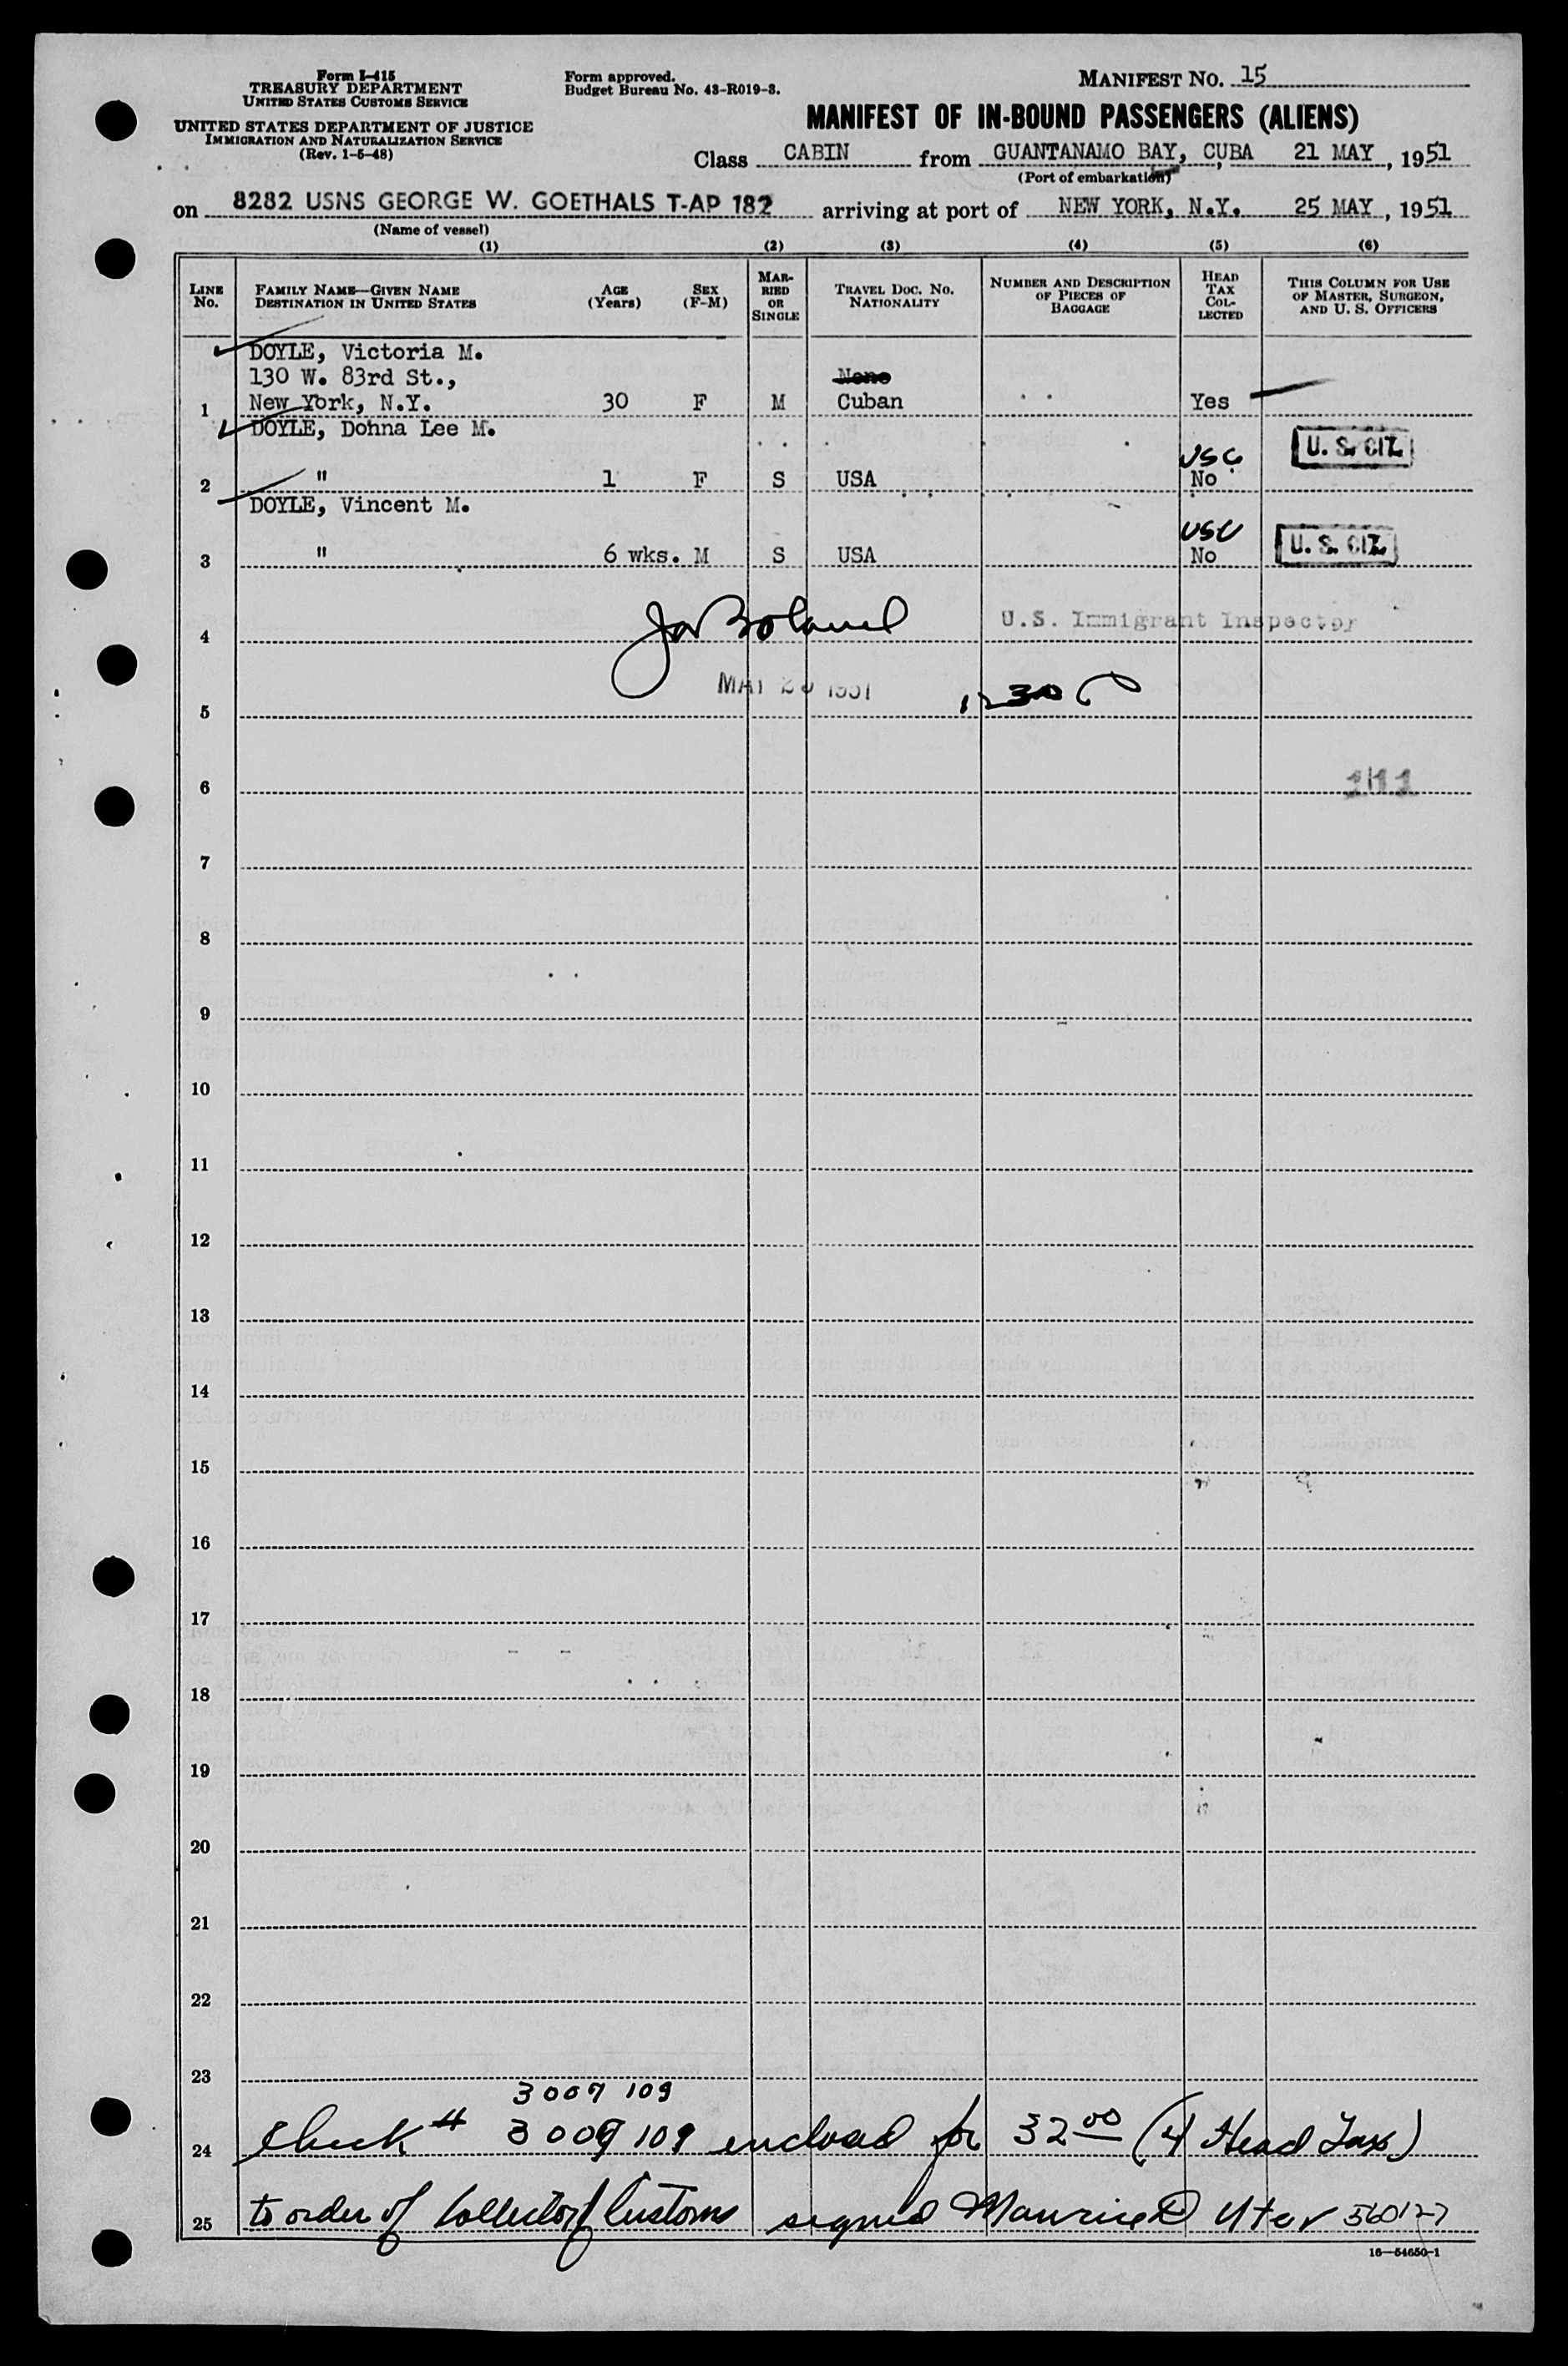 Form I-415
TREASURY DEPARTMENT
UNITED STATES CUSTOMS SERVICE
UNITED STATES DEPARTMENT OF JUSTICE
IMMIGRATION AND NATURALIZATION SERVICE
(Rev. 1-5-48)
Form approved.
Budget Bureau No. 43-R019-3.
MANIFEST NO. 15
MANIFEST OF IN-BOUND PASSENGERS (ALIENS)
Class CABIN from GUANTANAMO BAY, CUBA 21 MAY, 1951
(Port of embarkation)
on 8282 USNS GEORGE W. GOETHALS T-AP 182 arriving at port of NEW YORK, N.Y. 25 MAY, 1951
(Name of vessel)
(1) (2) (3) (4) (5) (6)
LINE No. FAMILY NAME—GIVEN NAME DESTINATION IN UNITED STATES AGE (Years) SEX (F-M) MARRIED OR SINGLE TRAVEL DOC. NO. NATIONALITY NUMBER AND DESCRIPTION OF PIECES OF BAGGAGE HEAD TAX COLLECTED THIS COLUMN FOR USE OF MASTER, SURGEON, AND U. S. OFFICERS
DOYLE, Victoria M.
130 W. 83rd St., None
1 New York, N.Y. 30 F M Cuban Yes
DOYLE, Donna Lee M.
USC U. S. CIT.
2 " 1 F S USA No
DOYLE, Vincent M.
USC U. S. CIT.
3 " 6 wks. M S USA No
4 U.S. Immigrant Inspector
MAY 1951 1230
5
6
7
8
9
10
11
12
13
14
15
16
17
18
19
20
21
22
23
3009 109
24 Check # 3009 109 enclosed for 32 00 (4 Head Tax)
25 to order of Collector of Customs signed Maurice D Uter 560127
16—54650-1